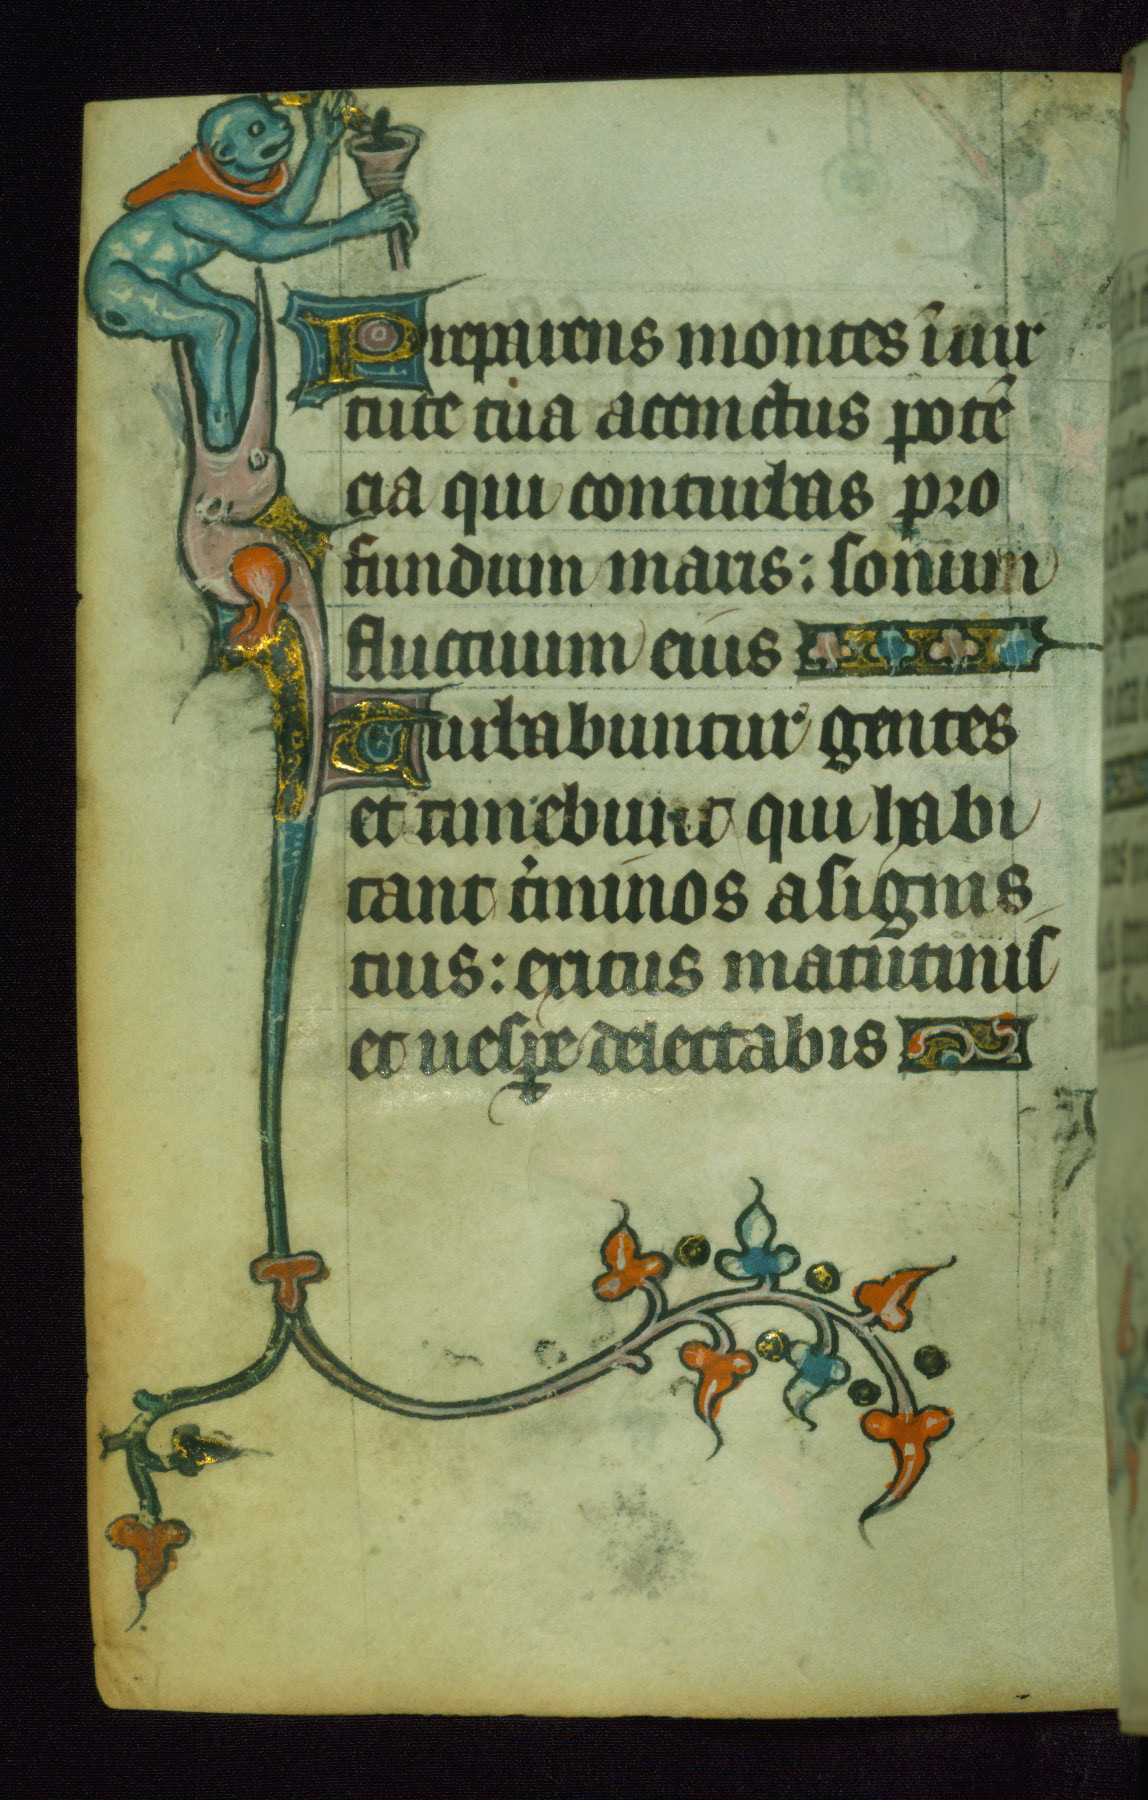 Preparens montes ī uir
tute tua accinctus potē
cia qui conturbas pro
fundum maris: sonum
fluctuum eius
Turbabuntur gentes
et timebunt qui habi
tant t̓minos a signis
tuis: exitus matutinis
et uespe̲ delectabis